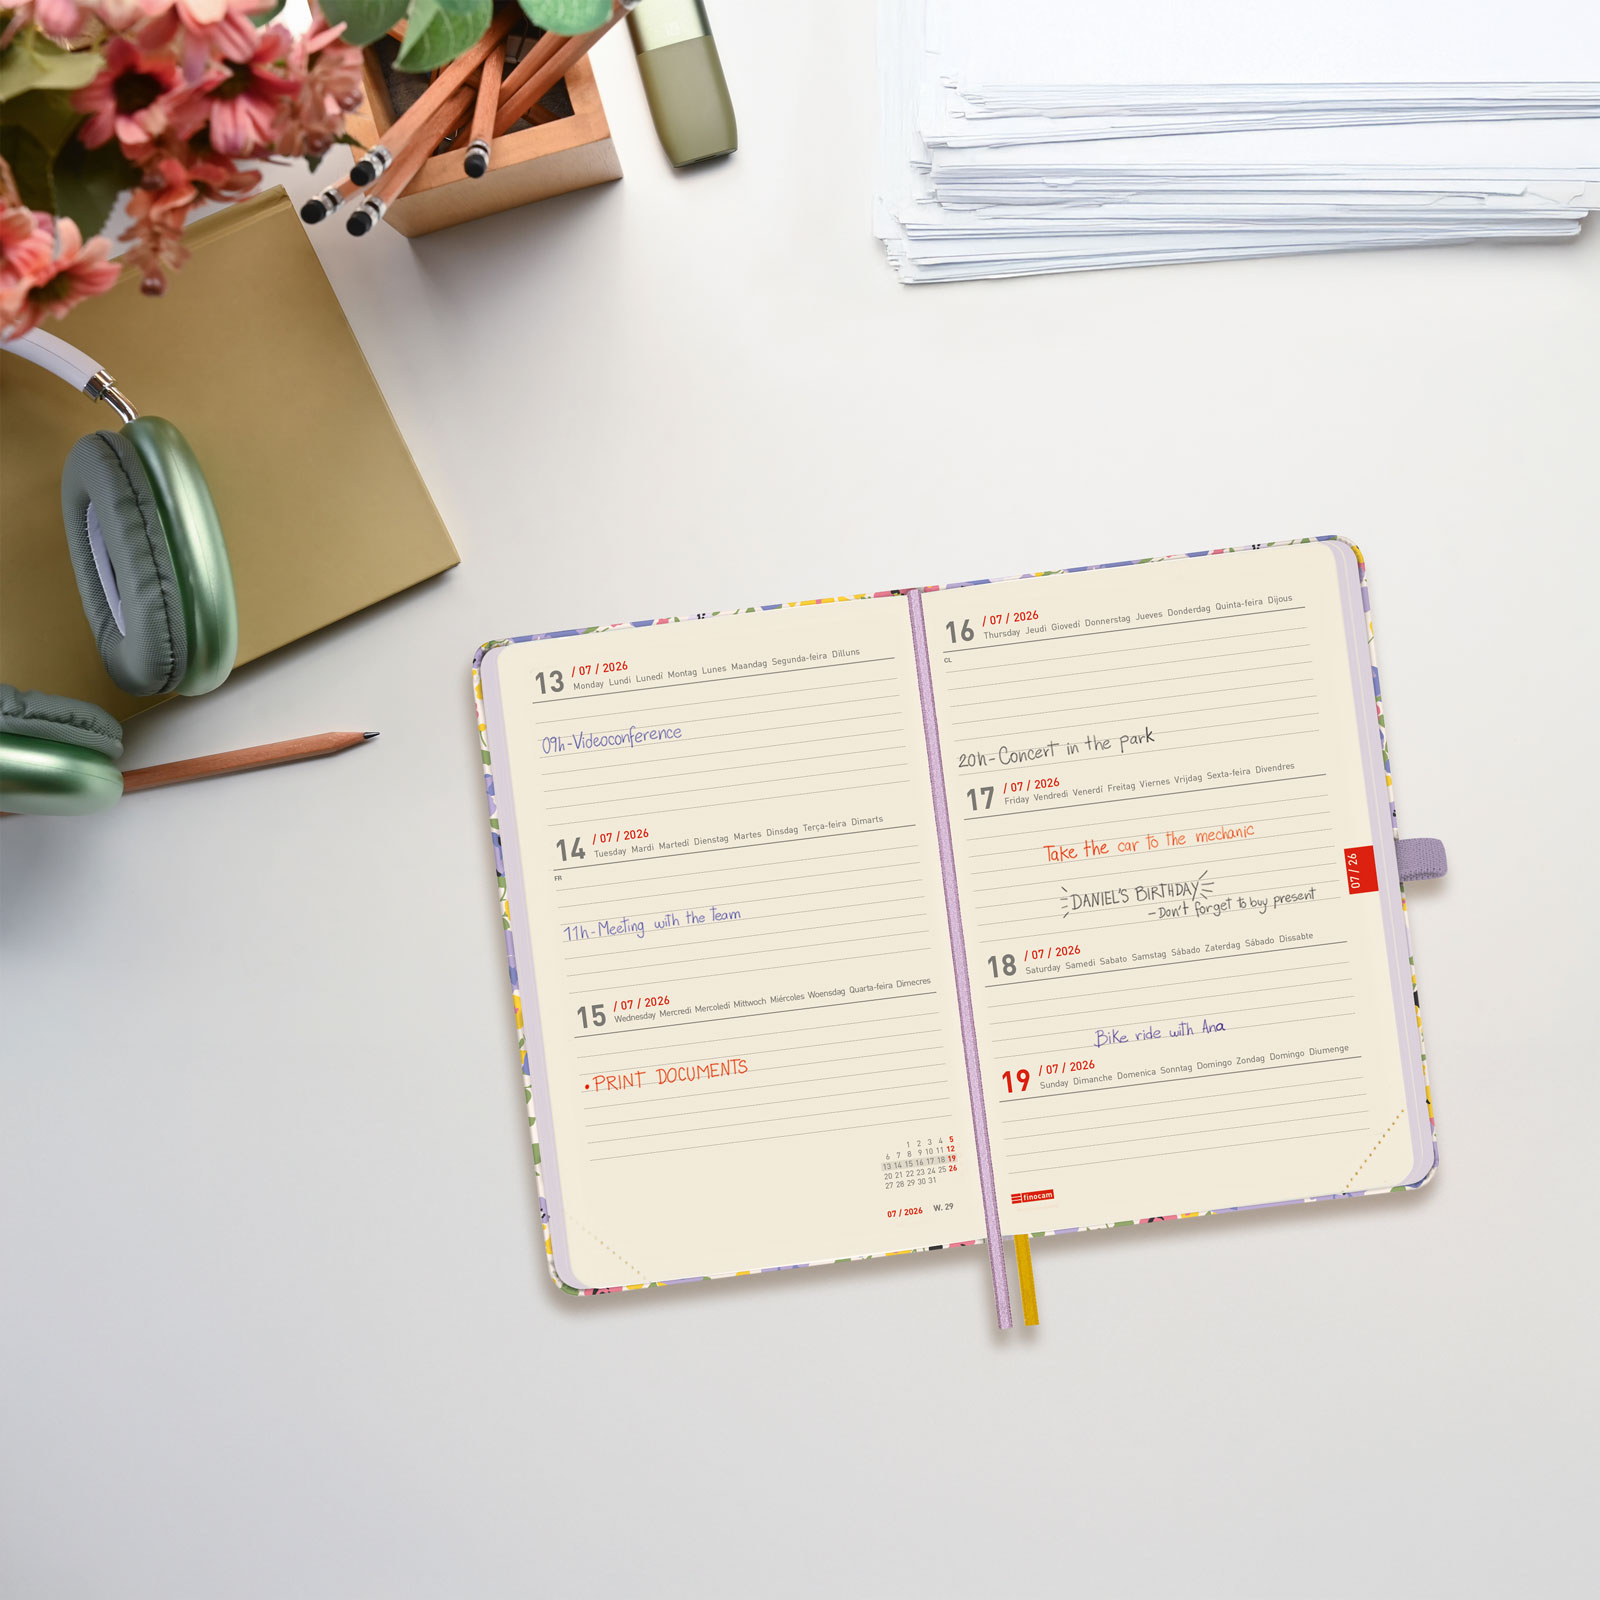 13 / 07 / 2026
Monday Lundi Lunedì Montag Lunes Maandag Segunda-feira Dilluns
09h-Videoconference
14 / 07 / 2026
Tuesday Mardi Martedì Dienstag Martes Dinsdag Terça-feira Dimarts
FR
11h-Meeting with the team
15 / 07 / 2026
Wednesday Mercredi Mercoledì Mittwoch Miércoles Woensdag Quarta-feira Dimecres
•PRINT DOCUMENTS
1 2 3 4 5
6 7 8 9 10 11 12
13 14 15 16 17 18 19
20 21 22 23 24 25 26
27 28 29 30 31
07 / 2026 W. 29
16 / 07 / 2026
Thursday Jeudi Giovedì Donnerstag Jueves Donderdag Quinta-feira Dijous
CL
20h-Concert in the park
17 / 07 / 2026
Friday Vendredi Venerdì Freitag Viernes Vrijdag Sexta-feira Divendres
Take the car to the mechanic
DANIEL'S BIRTHDAY
-Don't forget to buy present
07 / 26
18 / 07 / 2026
Saturday Samedi Sabato Samstag Sábado Zaterdag Sábado Dissabte
Bike ride with Ana
19 / 07 / 2026
Sunday Dimanche Domenica Sonntag Domingo Zondag Domingo Diumenge
finocam